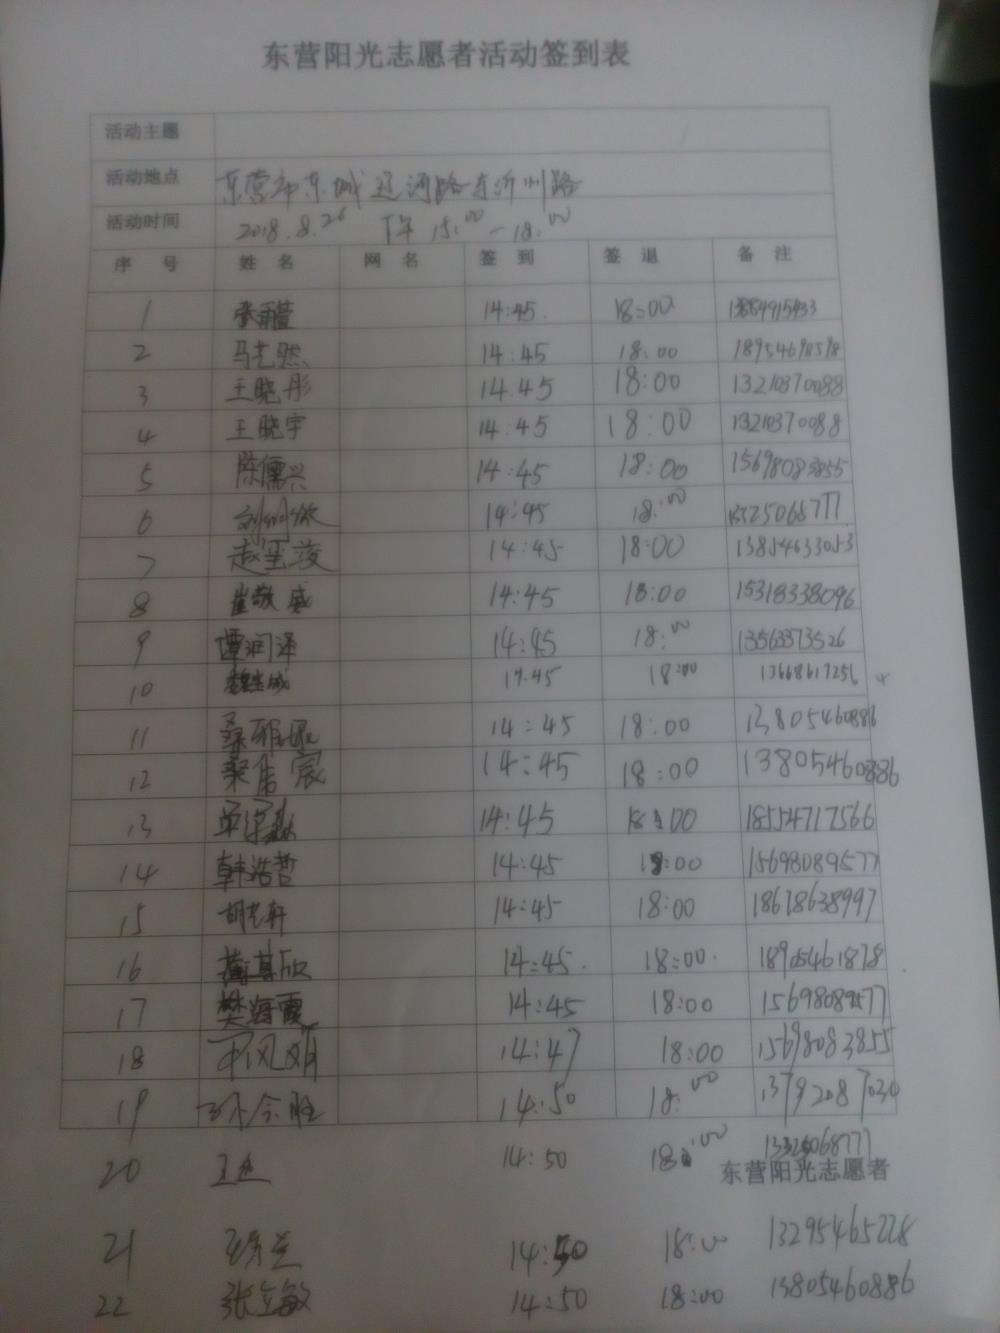 东营阳光志愿者活动签到表
活动主题
活动地点 东营市东城辽河路东沂州路
活动时间 2018.8.26 下午 15:00-18:00
序 号 姓 名 网 名 签 到 签 退 备 注
1 14:45. 18:00
2 马艺然 14:45 18:00 18954698598
3 王晓彤 14.45 18:00 13210370088
4 王晓宇 14:45 18:00 13210370088
5 陈儒兴 14:45 18:00 15698083855
6 14:45 18:00
7 14:45 18:00 13854633053
8 崔敬盛 14:45 18:00 15318338096
9 谭润泽 14:45 18:00 13563373526
10 18:00 13668617256
11 14:45 18:00 13805460886
12 14:45 18:00 13805460886
13 14:45 18:00 18554717566
14 韩浩哲 14:45 18:00 15698089577
15 14:45 18:00 18678638997
16 14:45. 18:00. 18905461878
17 樊海霞 14:45 18:00 15698089577
18 14:47 18:00 15698083855
19 14:50 18:00 13792087030
20 14:50 18:00
东营阳光志愿者
21 14:50 18:00 13295465228
22 14:50 18:00 13805460886